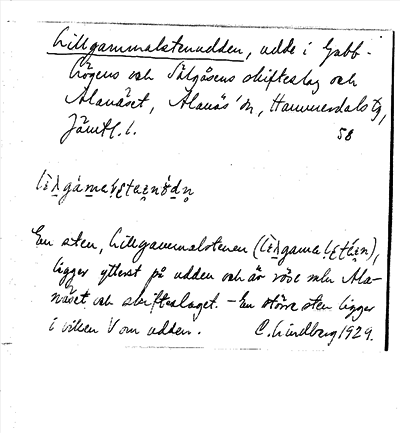 Lillgammalstenudden, udde i Gubb-
högens och Sälgåsens skifteslag och
Alanäset, Alanäs sn, Hammerdals tg,
Jämtl. l. 58
En sten, Lillgammalstenen
ligger ytterst på udden och är röse mln Ala-
näset och skifteslaget. – En större sten ligger
i viken V om udden. C. Lindberg 1929.